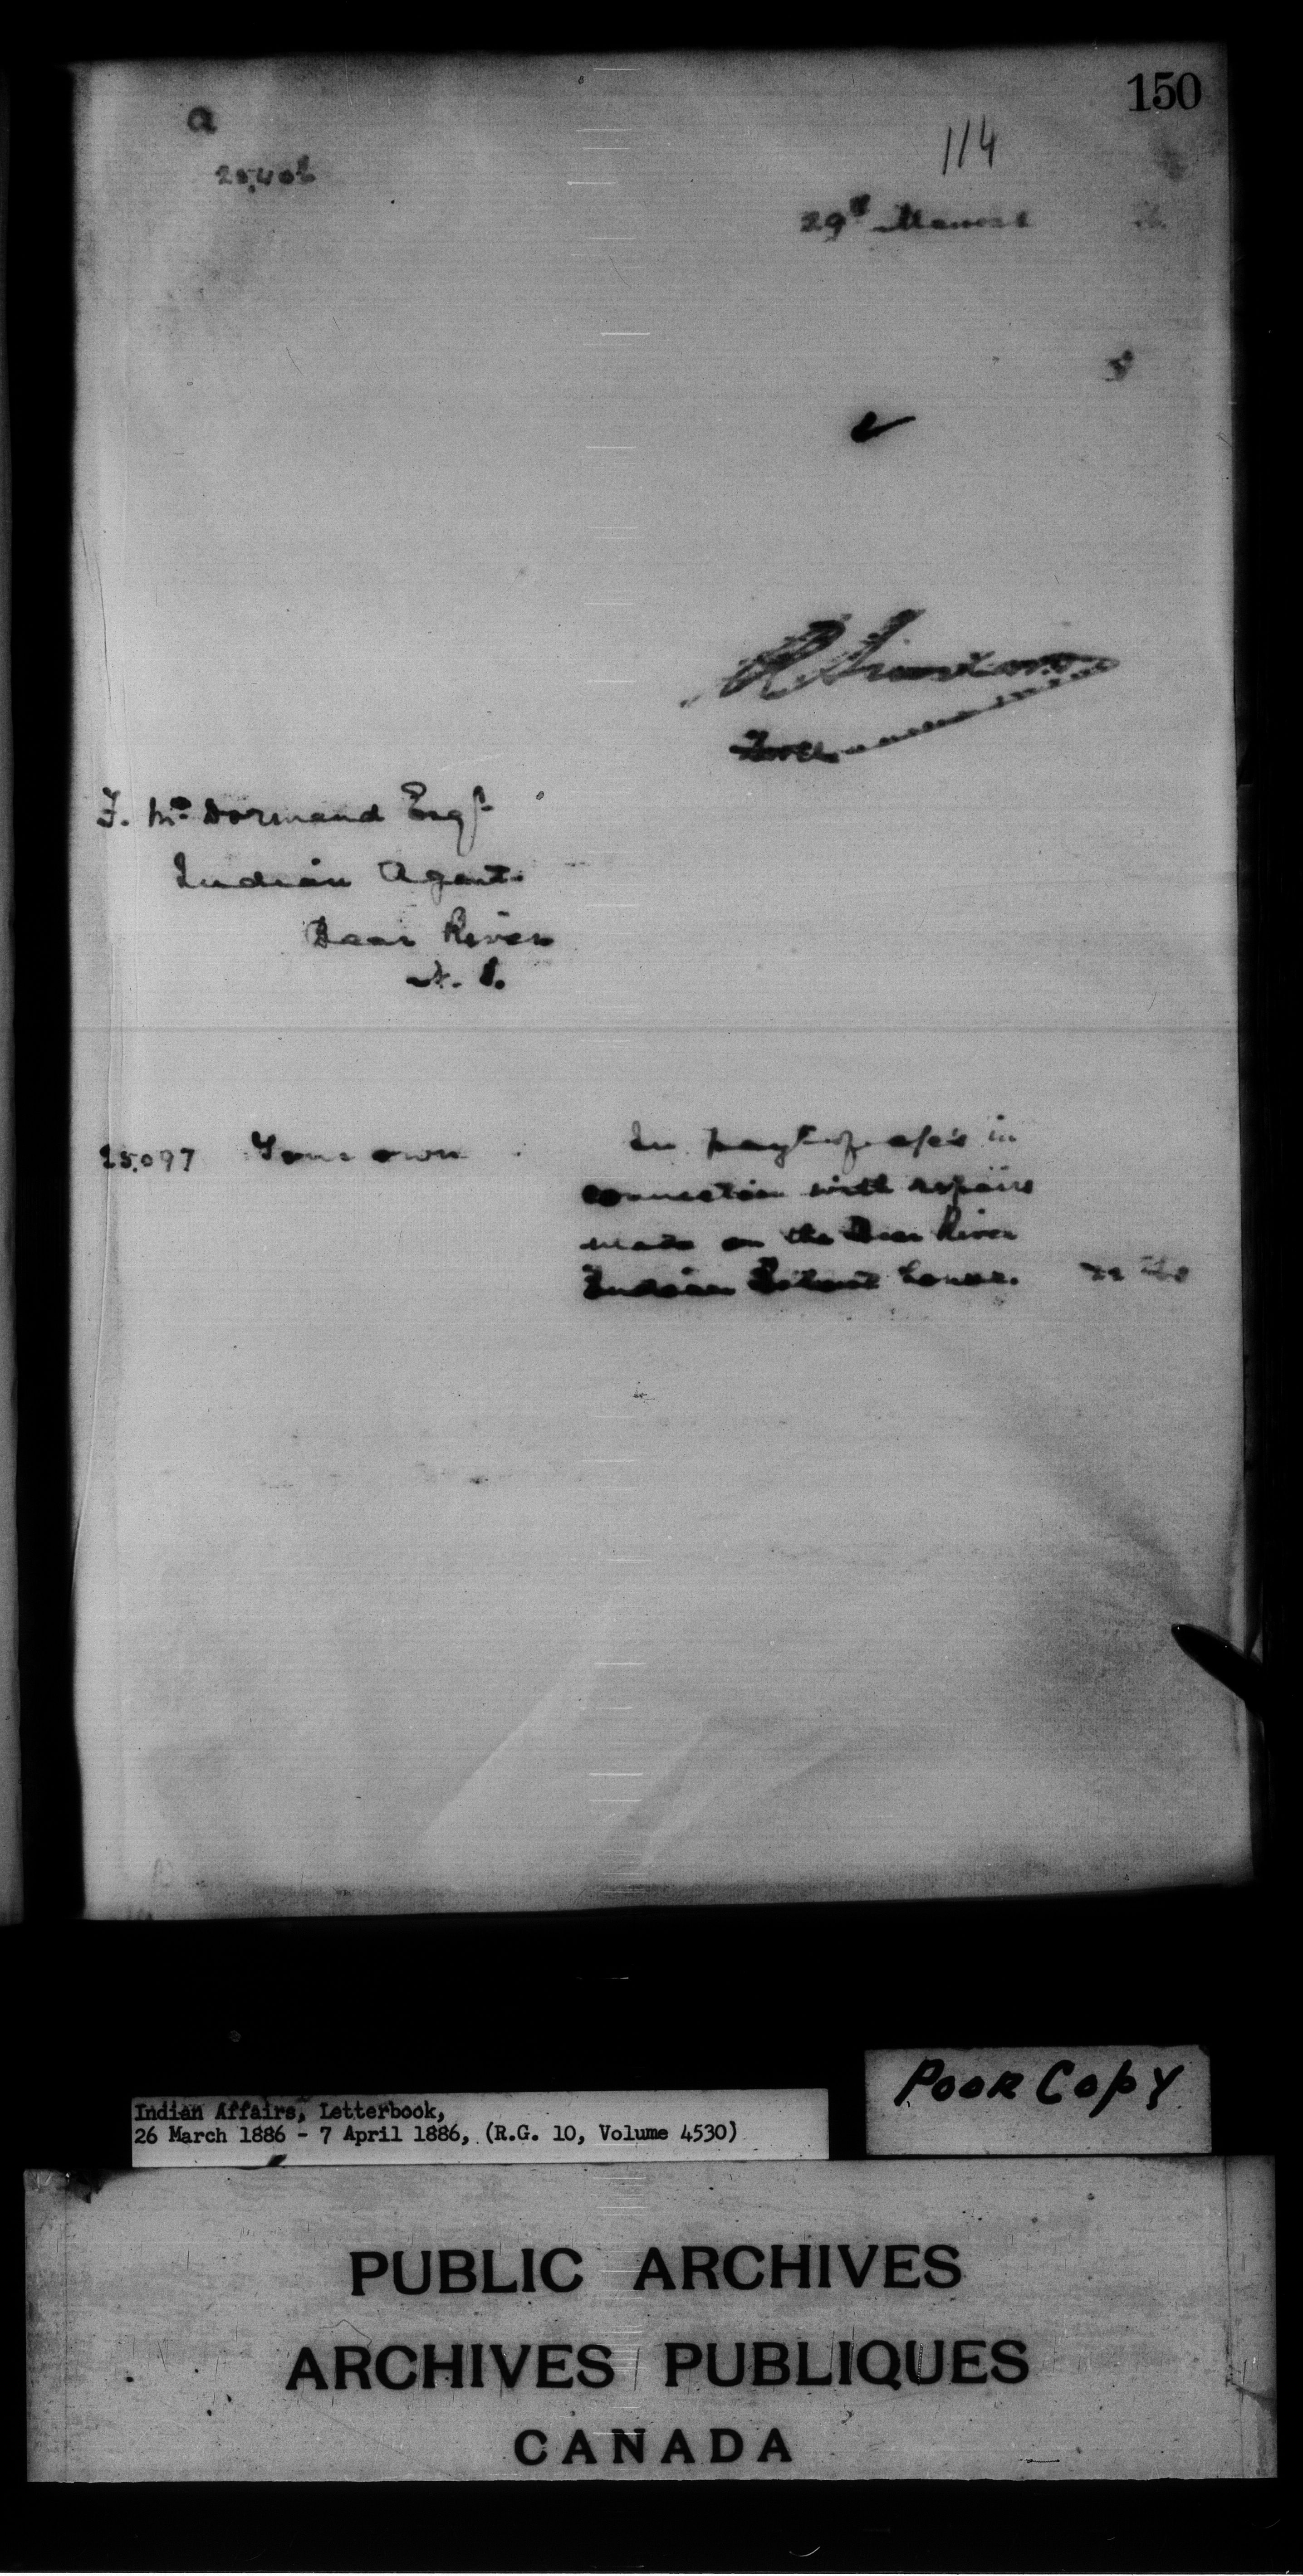 150
a
114
29th March
R Sinclair
F. McDormand Esqr
Indian Agent
Bear River
N. S.
25,097 Your own
In payt of a/c's in
connection with repairs
made on the Bear River
Indian School house.
Poor Copy
Indian Affairs, Letterbook,
26 March 1886 - 7 April 1886, (R.G. 10, Volume 4530)
PUBLIC ARCHIVES
ARCHIVES PUBLIQUES
CANADA